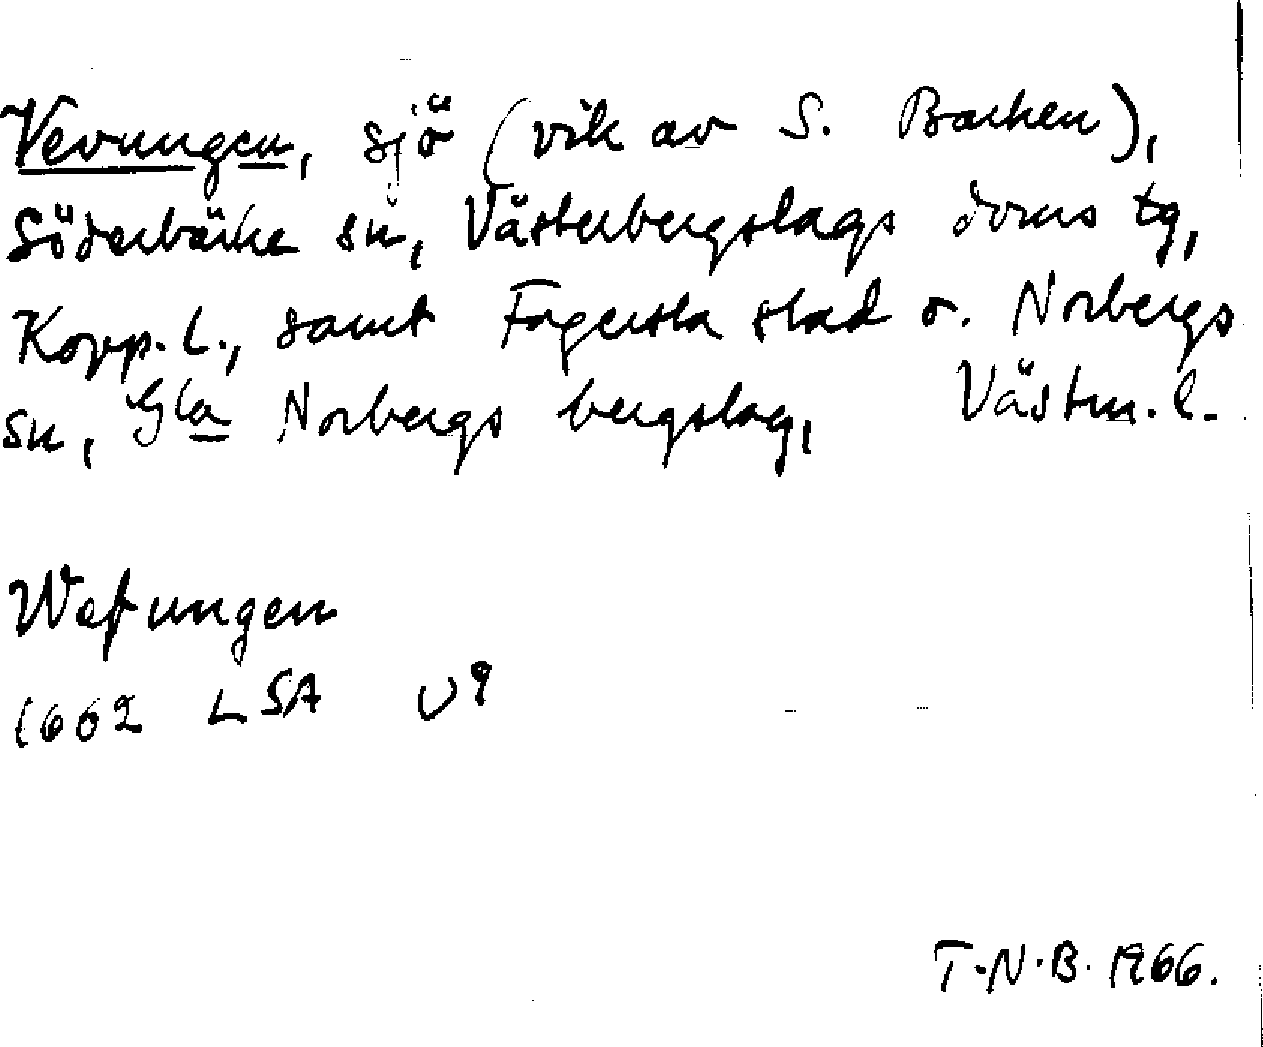 Vevungen, sjö (vik av S. Barken),
Söderbärke sn, Västerbergslags doms tg,
Kopp. l., samt Fagersta stad o. Norbergs
sn, Gla Norbergs bergslag, Västm. l.
Wefungen
1662 LSA U9
T.N.B. 1966.